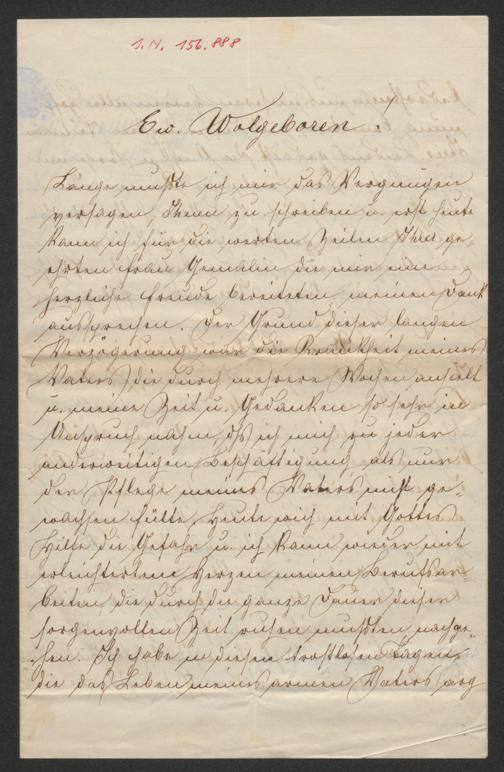 I.N. 156.888
Ew. Wolgeboren.
Lange mußte ich mir das Vergnügen
versagen, Ihnen zu schreiben u. erst heute
kann ich für die werten Zeilen Ihrer ge-
ehrten Frau Gemahlin die mir eine
herzliche Freude bereiteten, meinen Dank
aussprechen. Der Grund dieser langen
Verzögerung war die Krankheit meines
Vaters, die durch mehrere Wochen anhielt
u. meine Zeit u. Gedanken so sehr in
Anspruch nahm, dß ich mich zu jeder
anderweitigen Beschäftigung als nur
der Pflege meines Vaters nicht ge-
wachsen fühlte. Heute wich mit Gottes
Hilfe die Gefahr u. ich kann wieder mit
erleichtertem Herzen meinen Berufsar-
beiten die durch die ganze Dauer dieser
sorgenvollen Zeit ruhen mußten nachge-
hen. Ich habe in diesen trostlosen Tagen,
die das Leben meines armen Vaters arg